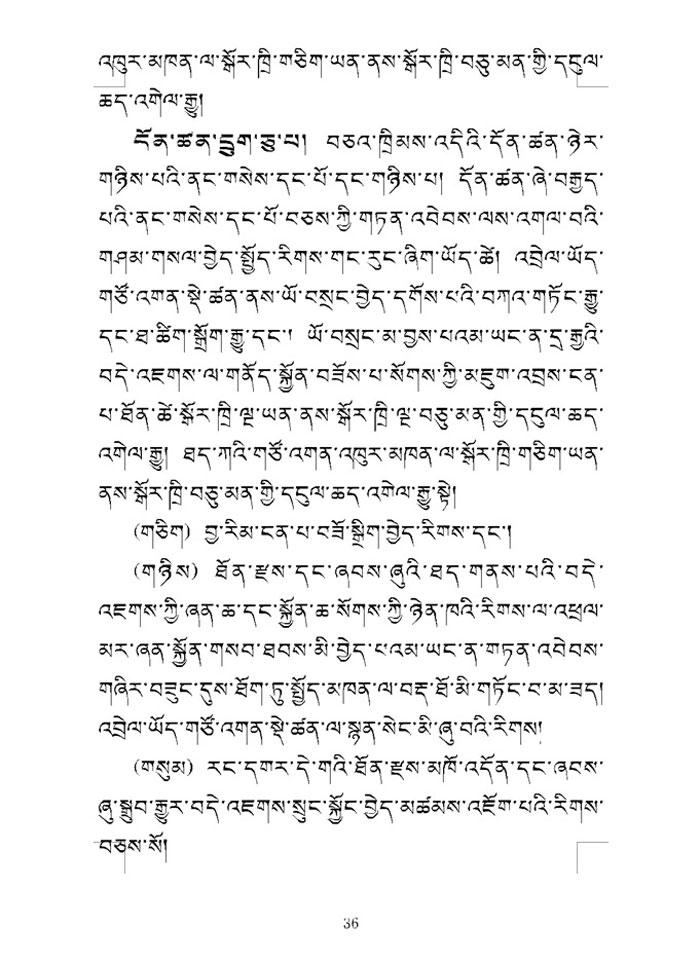 འཁུར་མཁན་ལ་སྒོར་ཁྲི་གཅིག་ཡན་ནས་སྒོར་ཁྲི་བཅུ་མན་གྱི་དངུལ་
ཆད་འགེལ་རྒྱུ།
དོན་ཚན་དྲུག་ཅུ་པ། བཅའ་ཁྲིམས་འདིའི་དོན་ཚན་ཉེར་
གཉིས་པའི་ནང་གསེས་དང་པོ་དང་གཉིས་པ། དོན་ཚན་ཞེ་བརྒྱད་
པའི་ནང་གསེས་དང་པོ་བཅས་ཀྱི་གཏན་འབེབས་ལས་འགལ་བའི་
གཤམ་གསལ་བྱེད་སྤྱོད་རིགས་གང་རུང་ཞིག་ཡོད་ཚེ། འབྲེལ་ཡོད་
གཙོ་འགན་སྡེ་ཚན་ནས་ཡོ་བསྲང་བྱེད་དགོས་པའི་བཀའ་གཏོང་རྒྱུ་
དང་ཐ་ཚིག་སྒྲོག་རྒྱུ་དང་། ཡོ་བསྲང་མ་བྱས་པའམ་ཡང་ན་དྲ་རྒྱའི་
བདེ་འཇགས་ལ་གནོད་སྐྱོན་བཟོས་པ་སོགས་ཀྱི་མཇུག་འབྲས་ངན་
པ་ཐོན་ཚེ་སྒོར་ཁྲི་ལྔ་ཡན་ནས་སྒོར་ཁྲི་ལྔ་བཅུ་མན་གྱི་དངུལ་ཆད་
འགེལ་རྒྱུ། ཐད་ཀའི་གཙོ་འགན་འཁུར་མཁན་ལ་སྒོར་ཁྲི་གཅིག་ཡན་
ནས་སྒོར་ཁྲི་བཅུ་མན་གྱི་དངུལ་ཆད་འགེལ་རྒྱུ་སྟེ།
(གཅིག) བྱ་རིམ་ངན་པ་བཟོ་སྒྲིག་བྱེད་རིགས་དང་།
(གཉིས) ཐོན་རྫས་དང་ཞབས་ཞུའི་ཐད་གནས་པའི་བདེ་
འཇགས་ཀྱི་ཞན་ཆ་དང་སྐྱོན་ཆ་སོགས་ཀྱི་ཉེན་ཁའི་རིགས་ལ་འཕྲལ་
མར་ཞན་སྐྱོན་གསབ་ཐབས་མི་བྱེད་པའམ་ཡང་ན་གཏན་འབེབས་
གཞིར་བཟུང་དུས་ཐོག་ཏུ་སྤྱོད་མཁན་ལ་བརྡ་ཐོ་མི་གཏོང་བ་མ་ཟད།
འབྲེལ་ཡོད་གཙོ་འགན་སྡེ་ཚན་ལ་སྙན་སེང་མི་ཞུ་བའི་རིགས།
(གསུམ) རང་དགར་དེ་གའི་ཐོན་རྫས་མཁོ་འདོན་དང་ཞབས་
ཞུ་སྒྲུབ་རྒྱུར་བདེ་འཇགས་སྲུང་སྐྱོང་བྱེད་མཚམས་འཇོག་པའི་རིགས་
བཅས་སོ།
36